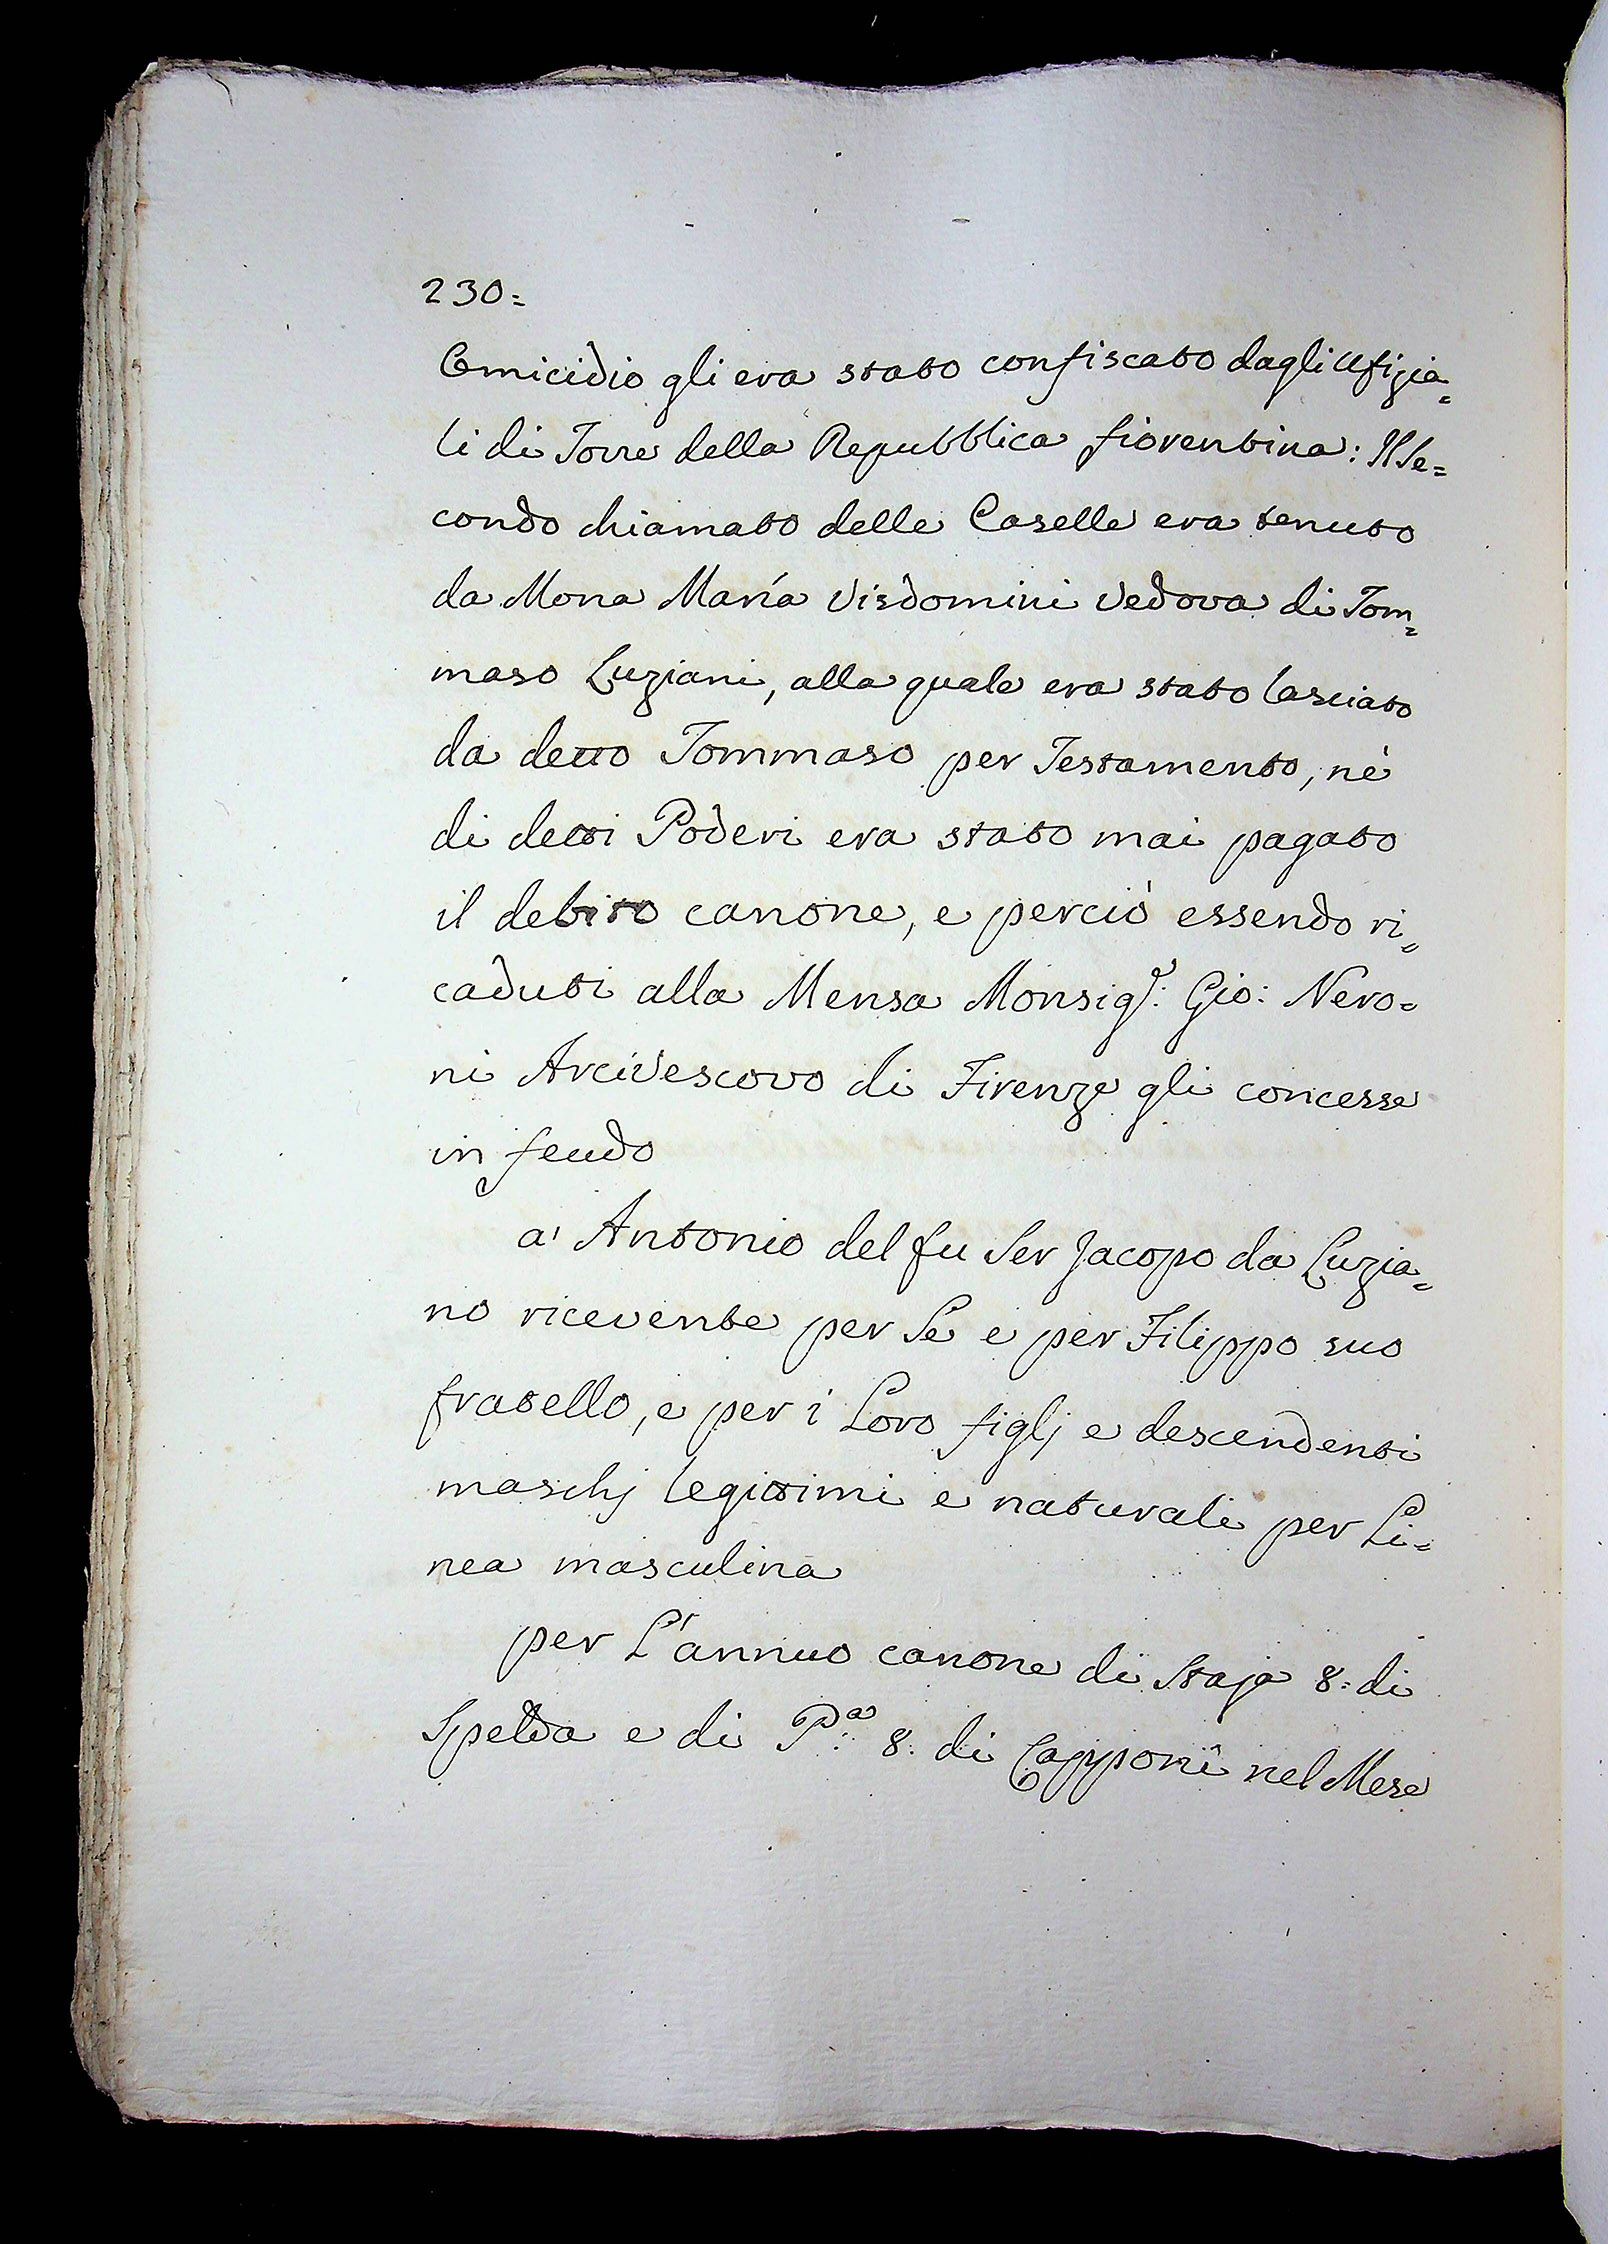 230=
Omicidio gli era stato confiscato dagli Ufizia=
li di Torre della Repubblica fiorentina: Il Se=
condo chiamato delle Caselle era tenuto
da Mona Maria Visdomini Vedova di Tom=
maso Luziani, alla quale era stato lasciato
da detto Tommaso per Testamento, nè
di detti Poderi era stato mai pagato
il debito canone, e perciò essendo ri=
caduti alla Mensa Monsig.r: Gio: Nero=
ni Arcivescovo di Firenze gli concesse
in feudo
a' Antonio del fu Ser Jacopo da Luzia=
no ricevente per Se e per Filippo suo
fratello, e per i Loro figlj e descendenti
maschj legittimi e naturali per Li=
nea masculina
per L'annuo canone di Staja 8. di
Spelda e di P.a 8. di Capponi nel Mese